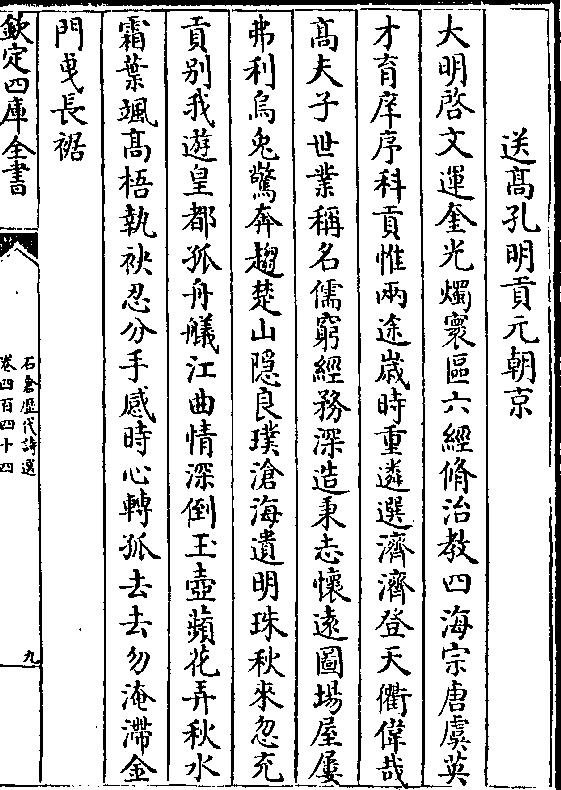 送髙孔明貢元朝京
大明啓文運奎光燭寰區六經脩治教四海宗唐虞英
才育庠序科貢惟兩途歳時重遴選濟濟登天衢偉哉
髙夫子世業稱名儒窮經務深造秉志懷遠圖場屋屢
弗利烏兔驚奔趨楚山隠良璞滄海遺明珠秋來忽充
貢别我遊皇都孤舟艤江曲情深倒玉壺蘋花弄秋水
霜葉颯髙梧執袂忍分手感時心轉孤去去勿淹滯金
門曵長裾
欽定四庫全書
石倉歴代詩選
卷四百四十四
九